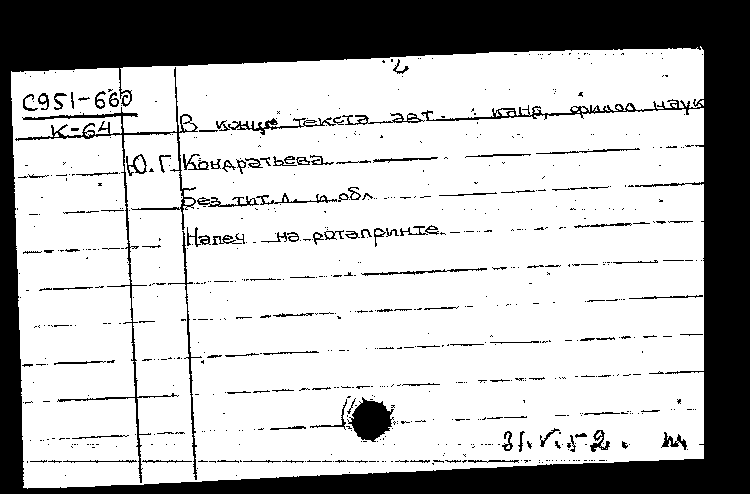 2
С951-660
К-64
В конце текста авт. : канд. филол наук
Ю. Г. Кондратьева
Без тит. л. и обл
Напеч на ротапринте
31.V.52.